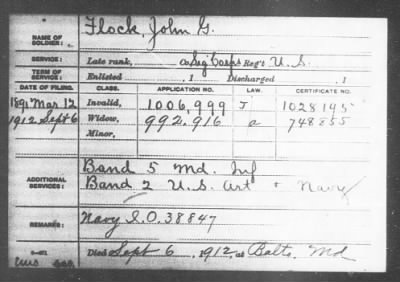 NAME OF SOLDIER: Flock, John G.
SERVICE: Late rank, Co. Sig Corps Reg't U.S.
TERM OF SERVICE: Enlisted , 1 Discharged , 1
DATE OF FILING. CLASS. APPLICATION NO. LAW. CERTIFICATE NO.
1891 Mar 12 Invalid, 1006,999 J 1028195
1912 Sept 6 Widow, 992,916 a 748855
Minor,
ADDITIONAL SERVICES: Band 5 Md. Inf
Band 2 U.S. Art + Navy
REMARKS: Navy S.O. 38847
Died Sept 6, 1912, at Balto. Md